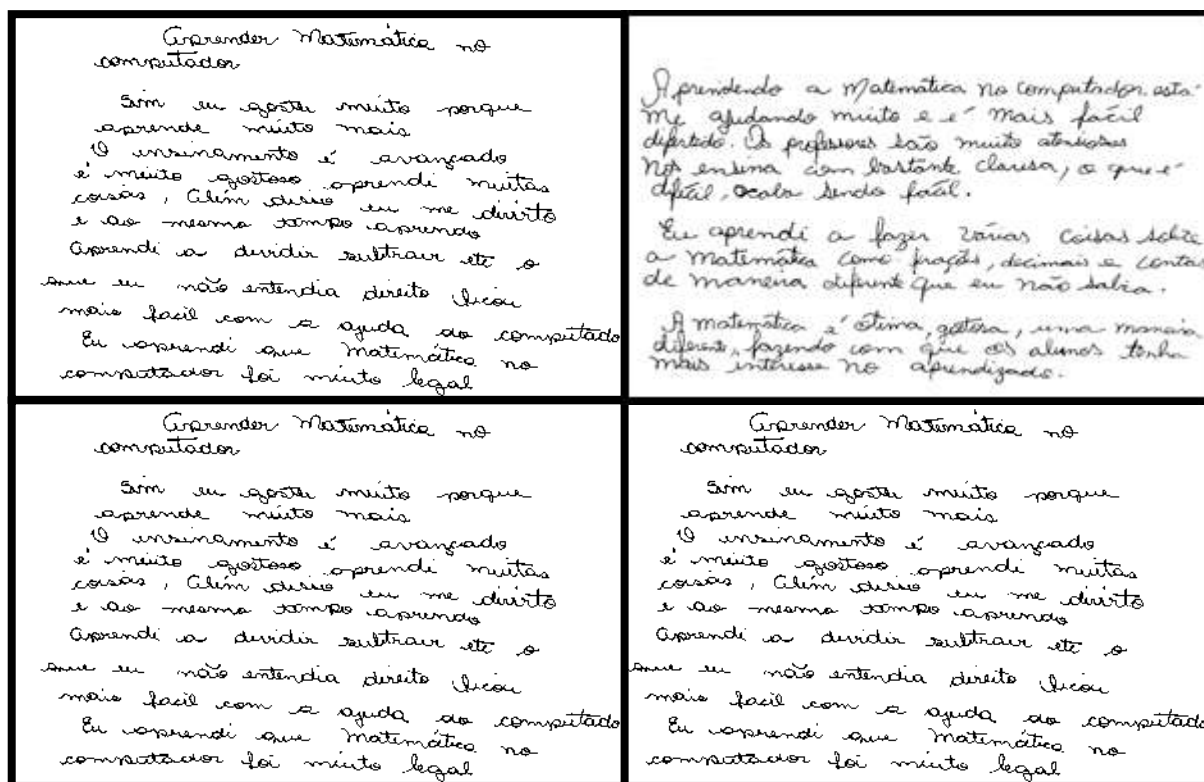 Aprender Matemática no
computador
Sim eu gostei muito porque
aprende muito mais
O ensinamento é avançado
é muito gostoso aprendi muitas
coisas, Além disso eu me divirto
e ao mesmo tempo aprendo
Aprendi a dividir subtrair etc o
que eu não entendia direito ficou
mais facil com a ajuda do computado
Eu aprendi que Matemática no
computador foi muito legal
Aprendendo a Matemática no computador está
me ajudando muito e é mais fácil
divertido. Os professores são muito atenciosos
nos ensina com bastante claresa, o que é
difícil, acaba sendo fácil.
Eu aprendi a fazer várias coisas sobre
a matemática como frações, decimais e contas
de maneira diferente que eu não sabia.
A matemática é ótima, gostosa, uma maneira
diferente, fazendo com que os alunos tenha
mais interesse no aprendizado.
Aprender Matemática no
computador
Sim eu gostei muito porque
aprende muito mais
O ensinamento é avançado
é muito gostoso aprendi muitas
coisas, Além disso eu me divirto
e ao mesmo tempo aprendo
Aprendi a dividir subtrair etc o
que eu não entendia direito ficou
mais facil com a ajuda do computado
Eu aprendi que Matemática no
computador foi muito legal
Aprender Matemática no
computador
Sim eu gostei muito porque
aprende muito mais
O ensinamento é avançado
é muito gostoso aprendi muitas
coisas, Além disso eu me divirto
e ao mesmo tempo aprendo
Aprendi a dividir subtrair etc o
que eu não entendia direito ficou
mais facil com a ajuda do computado
Eu aprendi que Matemática no
computador foi muito legal